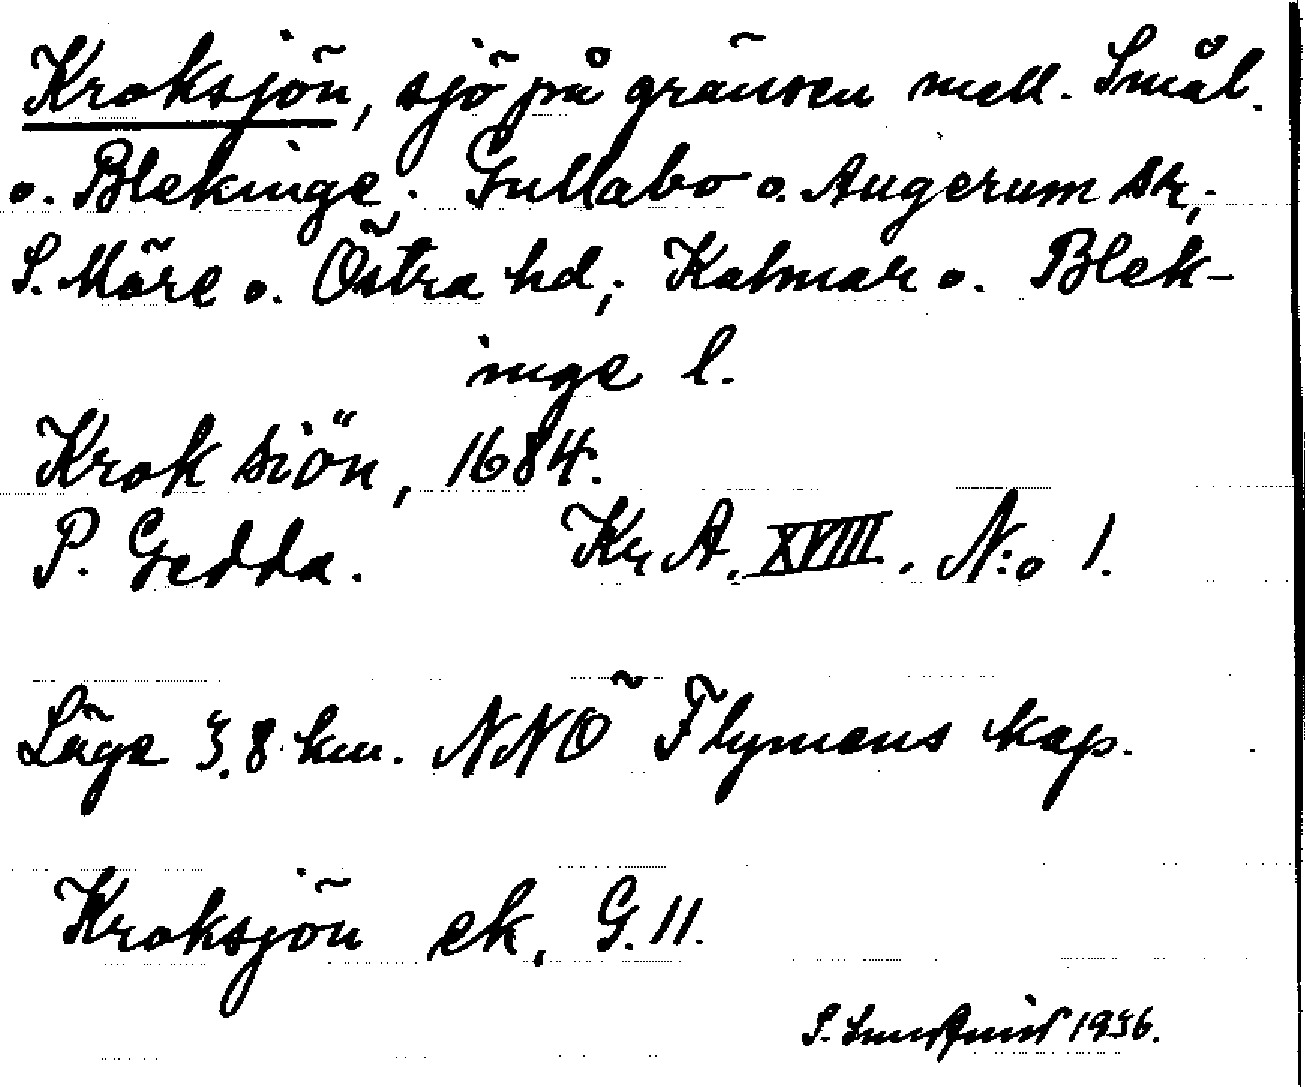 Kroksjön, sjö på gränsen mell. Smål.
o. Blekinge. Gullabo o. Augerum sr;
S. Möre o. Östra hd; Kalmar o. Blek-
inge l.
Krok siön, 1684.
P. Gedda. Kr A. XVIII. N:o 1.
Läge 3.8 km. NNÖ Flymens kap.
Kroksjön ek, G. 11.
S. 1936.